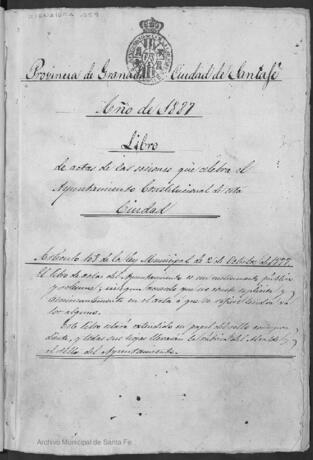 SIGNATURA 1259
Provincia de Granada Ciudad de Santafé
Año de 1887
Libro
de actas de las sesiones que celebra el
Ayuntamiento Constitucional de esta
Ciudad
Artículo 103 de la Ley Municipal de 2 de Octubre de 1877.
El libro de actas del Ayuntamiento es un instrumento público
y solemne; ningun acuerdo que no conste esplicita y
terminantemente en el acta á que se refiera tendrá va-
lor alguno.
Este libro estará estendido en papel del sello correspon-
diente, y todas sus hojas llevarán la rúbrica del Alcalde y
el sello del Ayuntamiento.
Archivo Municipal de Santa Fe